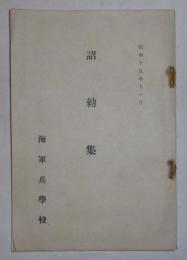 昭和十五年十一月
詔勅集
海軍兵學校